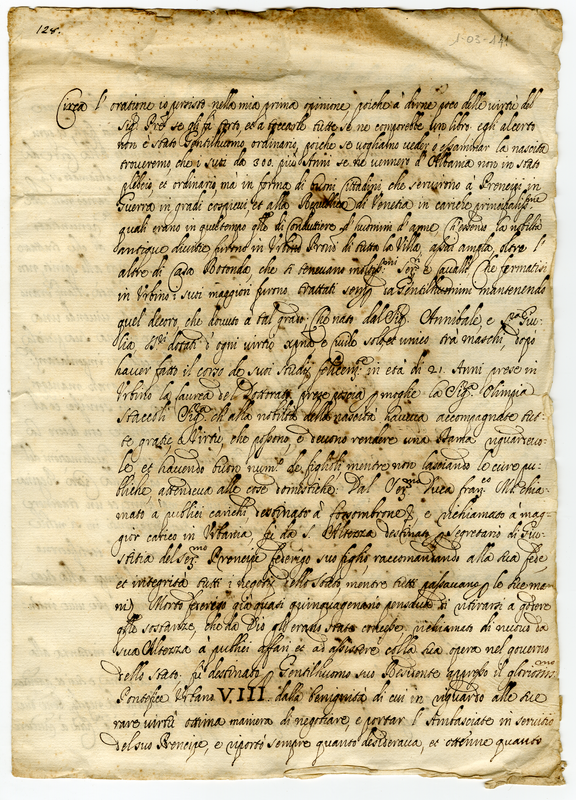 128.
1-03-141
Circa l' oratione io persisto nella mia prima opinione, poiche à dirne poco delle virtù del
Sig.r se gli fà torto, et à toccarle tutte se ne comporebbe un libro. egli al certo
non è stato Gentilhuomo ordinario, poiche se vogliamo veder et esaminar la nascita
troveremo che i suoi da 300. più Anni se ne vennero d' Albania non in stato
plebeio, et ordinario, ma in forma di buoni Cittadini che servirono à Prencipi in
Guerra in gradi cospicui, et alla Republica di Venetia in cariche
quali erano in quel tempo di Conduttiere d' huomini d' arme
antique divitie furono in di tutta la Villa, assai ampla, oltre l'
altre di Casa Botonda, che ti tenevano et Cavalli Che fermatisi
in Urbino i suoi maggiori furono trattati da Gentilhuomini mantenendo
quel decoro, che dovuto a tal grado. Che nato dal Sig. Annibale, e
dotati d' ogni virtù unico trà maschi, dopo
haver fatto il corso de suoi Studij in età di 21. Anni prese in
Urbino la laurea del Dottorato, prese poscia p moglie la Sig.ra Olimpia
Staccoli ch' alla nobiltà della nascita haveva accompagnate tut-
te gratie, e Virtù, che possono, e devono rendere una Dama riguardevo-
le, et havendo buon num.o de figlioli mentre non lasciando le cure pu-
bliche, attendeva alle cose domestiche: Dal Duca fran.co M.a chia-
mato a publici carichi destinato a e richiamato a mag-
gior carico in Urbania, fù da S. Altezza destinato p Secretario di Giu-
stitia del Ser.mo Prencipe federigo suo figlio raccomandando alla sua fede
et integrità tutti i negotij dello Stato mentre tutti passavano p le sue ma-
ni. Morto federigo già quasi quinquagenario pensava di ritirarsi a godere
sostanze, che da Dio gl' erano state concesse, richiamato di nuovo da
sua Altezza à publici affari et ad assistere colla sua opera nel governo
dello stato. fù destinato Gentilhuomo suo Residente appresso il glorios.mo
Pontefice Urbano VIII. dalla benignità di cui in riguardo alle sue
rare virtù ottima maniera di negotiare, e portar l' Ambasciate in servitio
del suo Prencipe, e riportò sempre quanto desiderava, et ottenne quanto